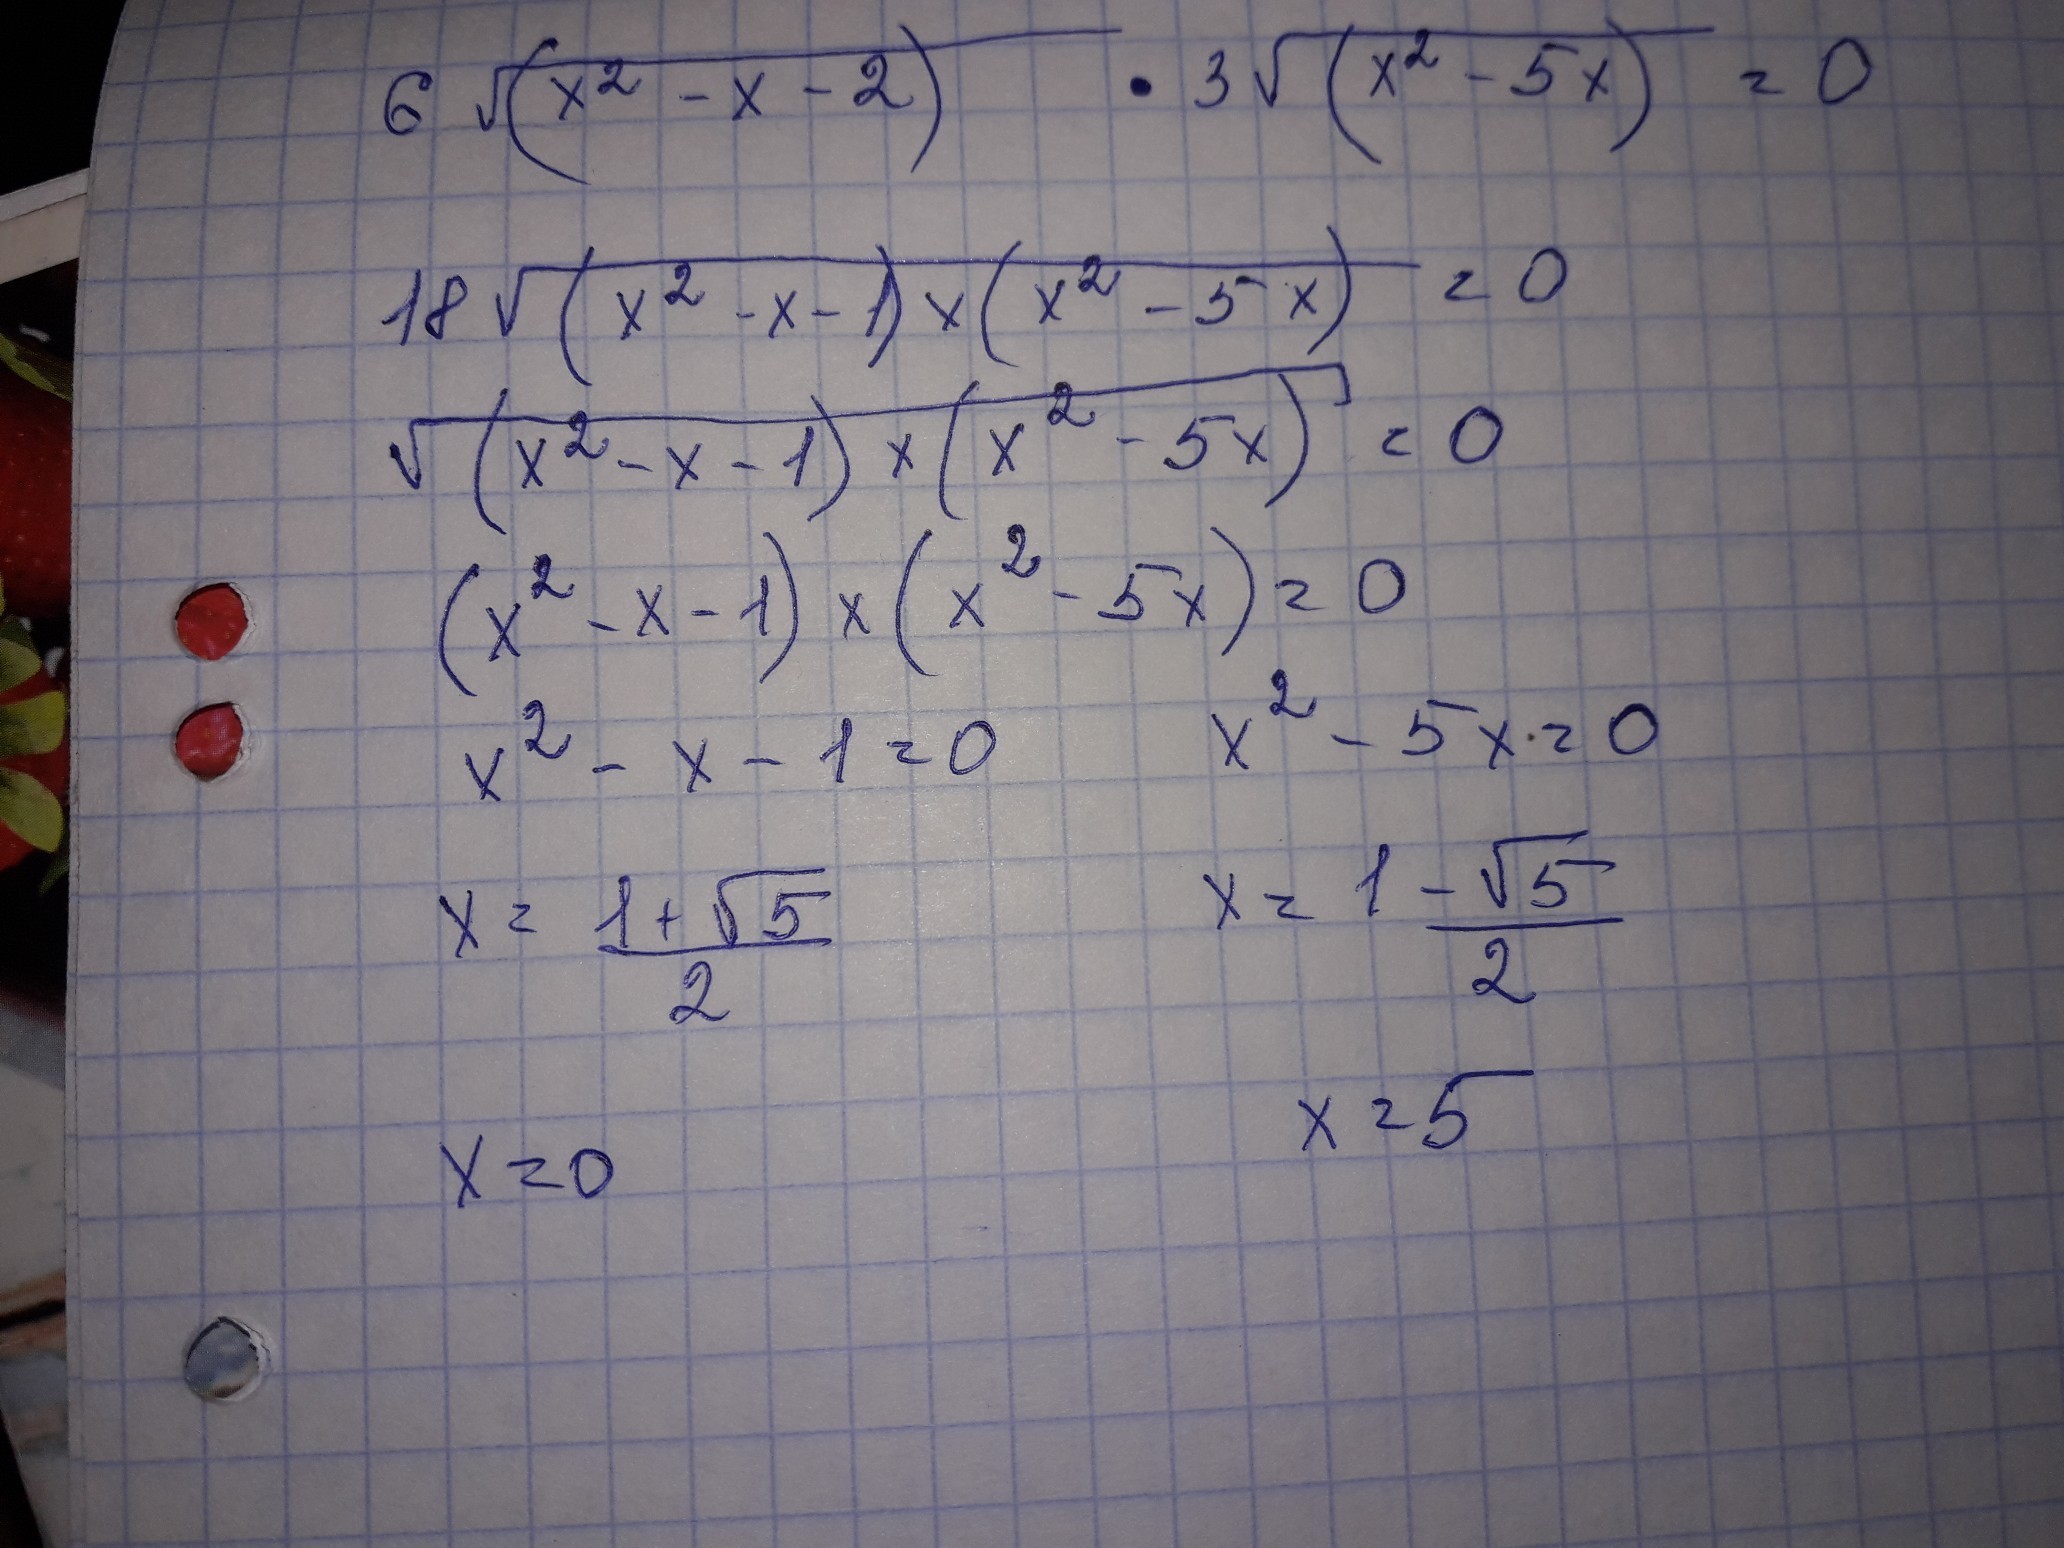 6 √(x² - x - 2) · 3 √(x² - 5x) = 0
18 √(x² - x - 1) x (x² - 5x) = 0
√(x² - x - 1) x (x² - 5x) = 0
(x² - x - 1) x (x² - 5x) = 0
x² - x - 1 = 0 x² - 5x = 0
x = (1 + √5)/2 x = 1 - √5/2
x = 0 x = 5